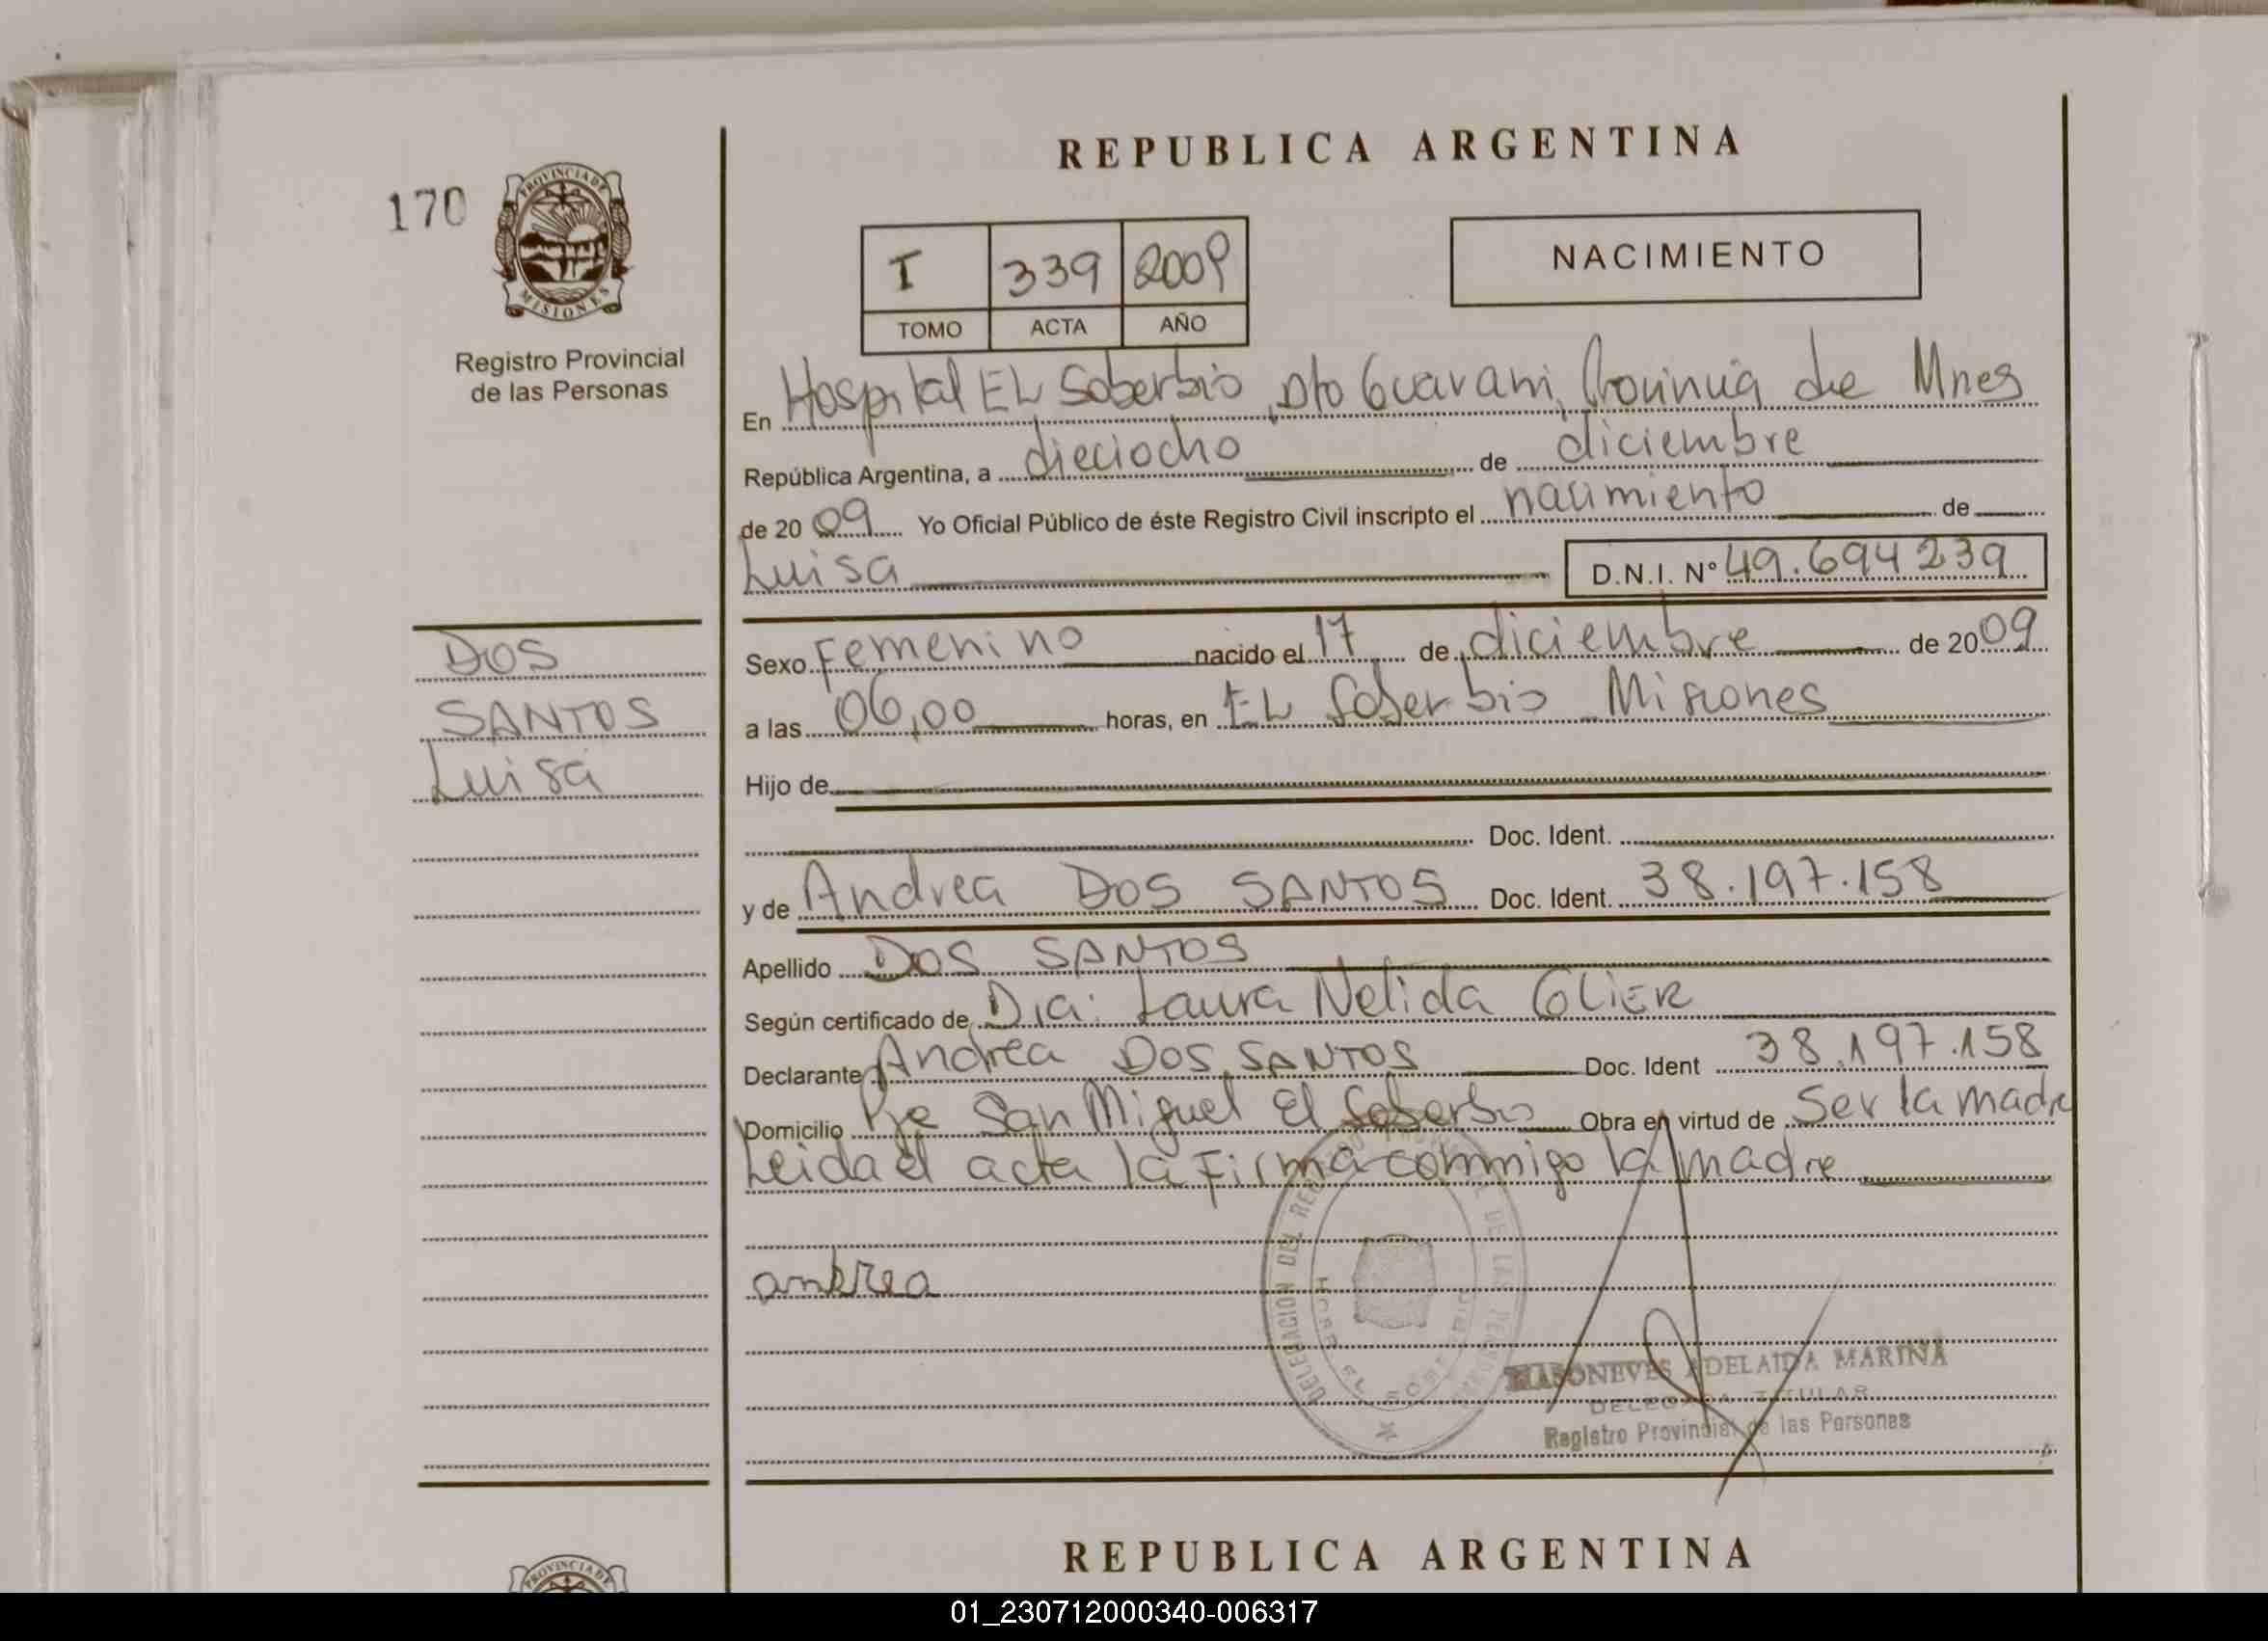 REPUBLICA ARGENTINA
170
PROVINCIA DE
MISIONES
Registro Provincial
de las Personas
T 339 2009
TOMO ACTA AÑO
NACIMIENTO
En Hospital EL Soberbio, Dto Guarani, Provincia de Mnes
República Argentina, a dieciocho de diciembre
de 2009 Yo Oficial Público de éste Registro Civil inscripto el nacimiento de
Luisa D.N.I. N° 49.694239
DOS
SANTOS
Luisa
Sexo Femenino nacido el 17 de diciembre de 2009
a las 06,00 horas, en EL Soberbio Misiones
Hijo de
Doc. Ident.
y de Andrea DOS SANTOS Doc. Ident. 38.197.158
Apellido DOS SANTOS
Según certificado de Dra: Laura Nelida GLIER
Declarante Andrea DOS SANTOS Doc. Ident 38.197.158
Domicilio Pje San Miguel El Soberbio Obra en virtud de Ser la madre
Leida el acta la Firma conmigo la madre
andrea
DELEGACION DEL REGISTRO PROVINCIAL DE LAS PERSONAS
ADELAIDA MARINA
DELEGADA TITULAR
Registro Provincial de las Personas
REPUBLICA ARGENTINA
PROVINCIA DE
01_230712000340-006317